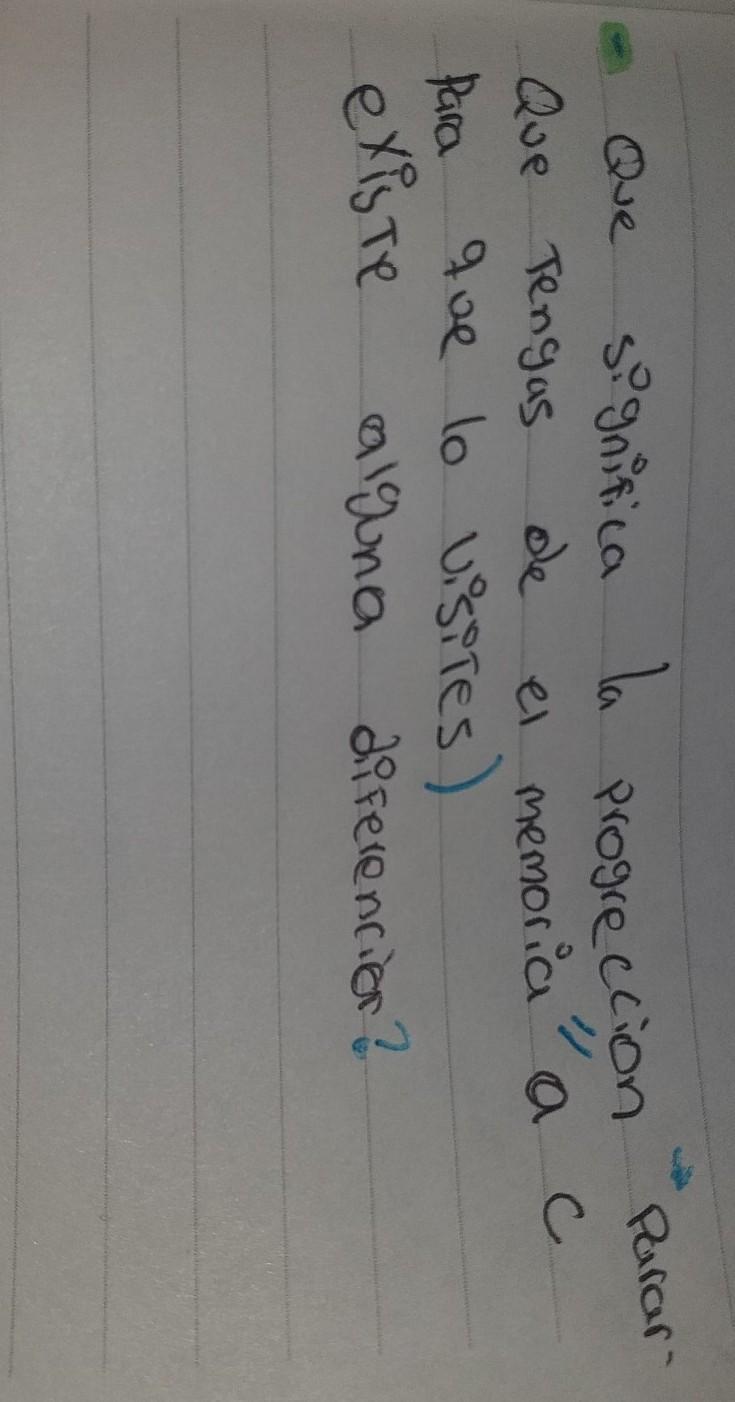 - Que significa la progreccion " Parar-
Que Tengas de el memoria" a c
Para que lo visites)
existe alguna diferencior?